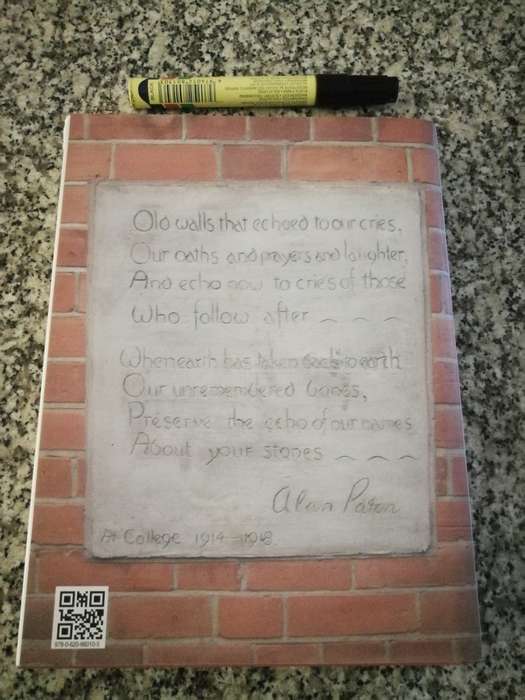 Old walls that echoed to our cries,
Our oaths and prayers and laughter,
And echo now to cries of those
Who follow after
When earth has taken back to earth
Our unremembered bones,
Preserve the echo of our names
About your stones
Alan Paton
At College 1914-1918